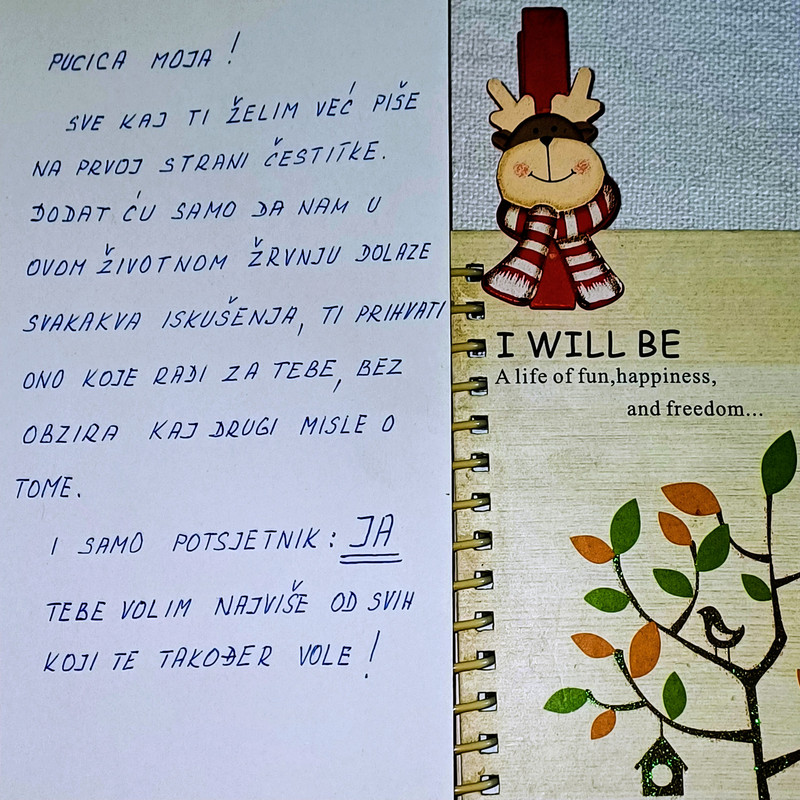 PUCICA MOJA!
SVE KAJ TI ŽELIM VEĆ PIŠE
NA PRVOJ STRANI ČESTITKE.
DODAT ĆU SAMO DA NAM U
OVOM ŽIVOTNOM ŽRVNJU DOLAZE
SVAKAKVA ISKUŠENJA, TI PRIHVATI
ONO KOJE RADI ZA TEBE, BEZ
OBZIRA KAJ DRUGI MISLE O
TOME.
I SAMO POTSJETNIK: JA
TEBE VOLIM NAJVIŠE OD SVIH
KOJI TE TAKOĐER VOLE!
I WILL BE
A life of fun,happiness,
and freedom...